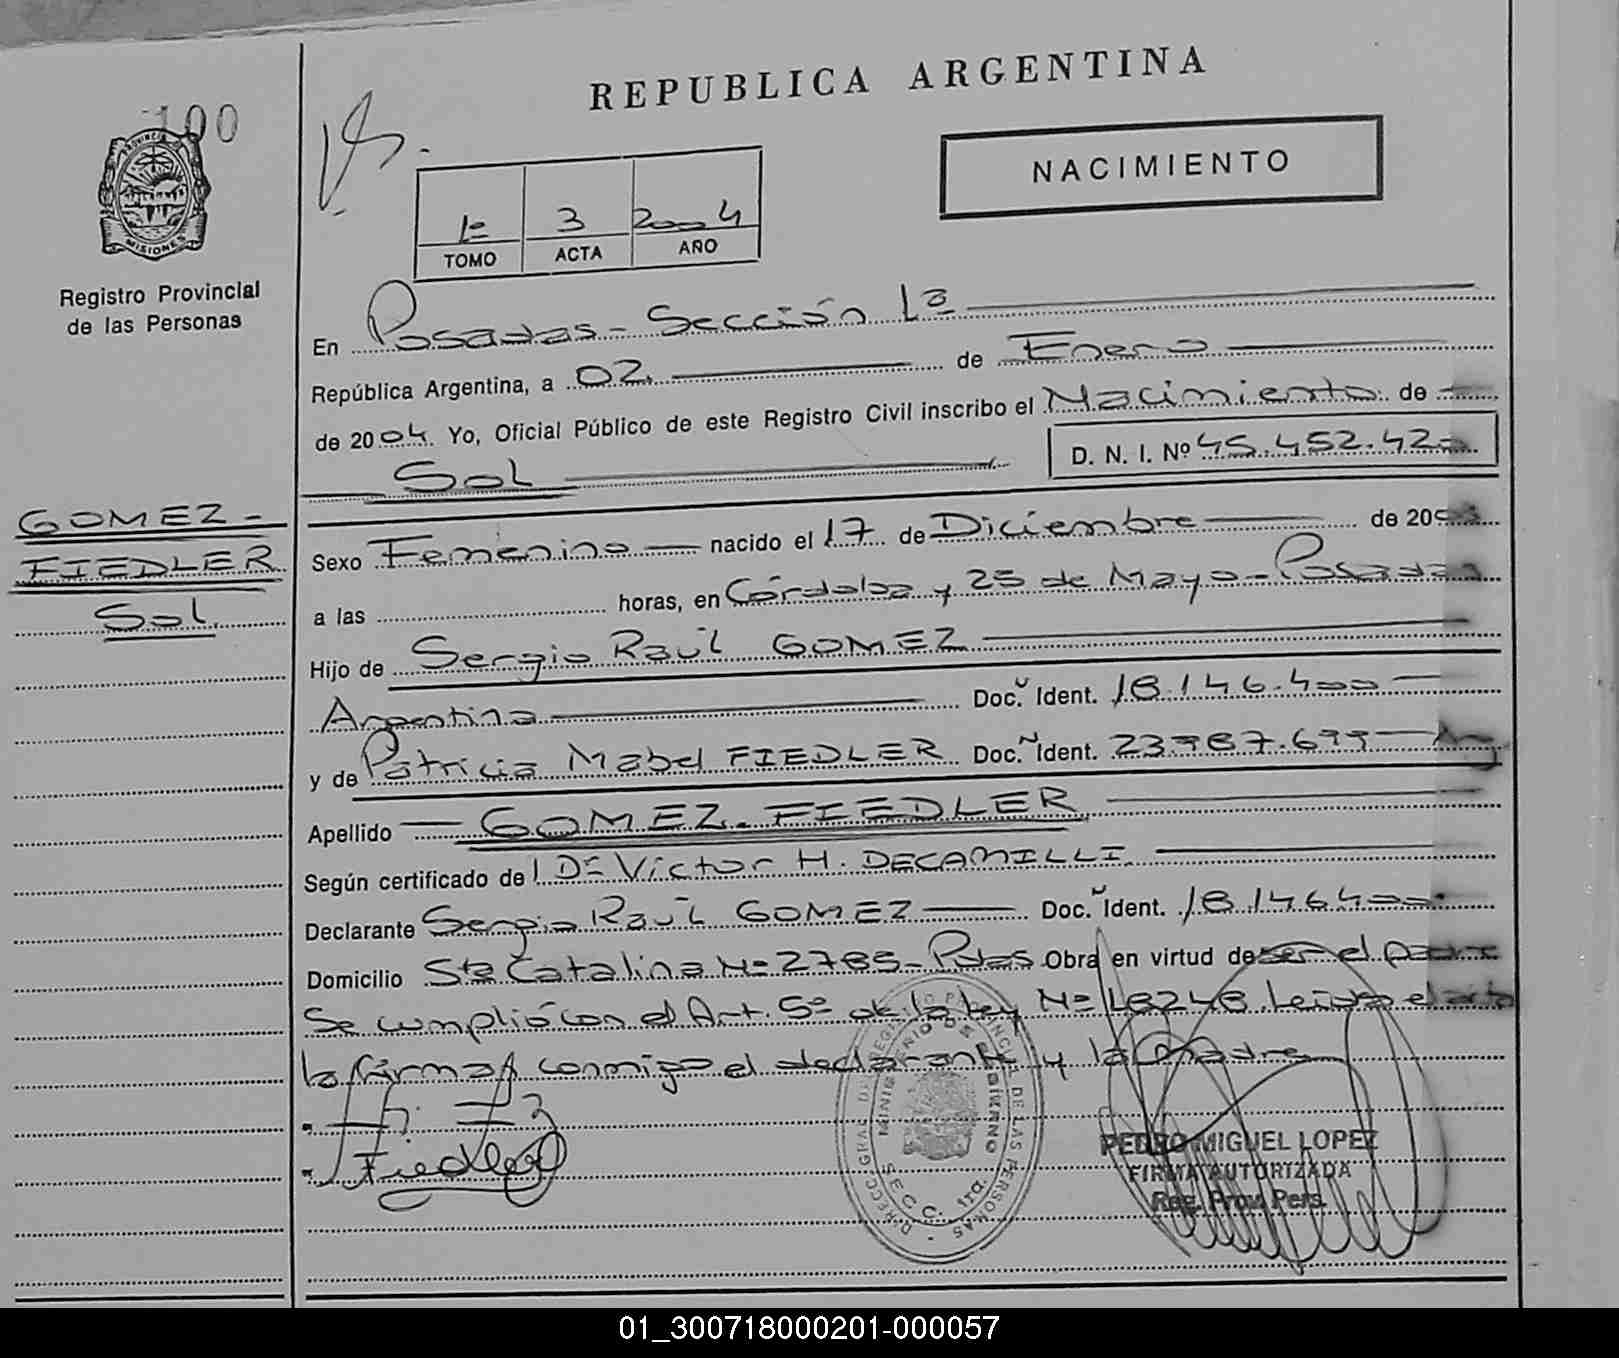 REPUBLICA ARGENTINA
100
PROVINCIA
MISIONES
Registro Provincial
de las Personas
NACIMIENTO
1º 3 2004
TOMO ACTA AÑO
En Posadas - Sección 1ª
República Argentina, a 02. de Enero
de 2004. Yo, Oficial Público de este Registro Civil inscribo el Nacimiento de
Sol D. N. I. Nº 45.452.420
GOMEZ-
FIEDLER
Sol
Sexo Femenino nacido el 17 de Diciembre de 2003
a las horas, en Córdoba y 25 de Mayo - Posadas
Hijo de Sergio Raúl GOMEZ
Argentina Doc. Ident. 18.146.400
y de Patricia Mabel FIEDLER Doc. Ident. 23.987.699 Arg
Apellido GOMEZ. FIEDLER
Según certificado del Dr Victor H. DECAMILLI
Declarante Sergio Raúl GOMEZ Doc. Ident. 18.146400
Domicilio Sta Catalina Nº 2785 - Pdas Obra en virtud de ser el padre
Se cumplió con el Art. 5º de la ley Nº 18248. Leida el acta
la firman conmigo el declarante y la Madre
Fiedler
SECC. 1ra.
PEDRO MIGUEL LOPEZ
FIRMA AUTORIZADA
Reg. Prov. Pers.
01_300718000201-000057